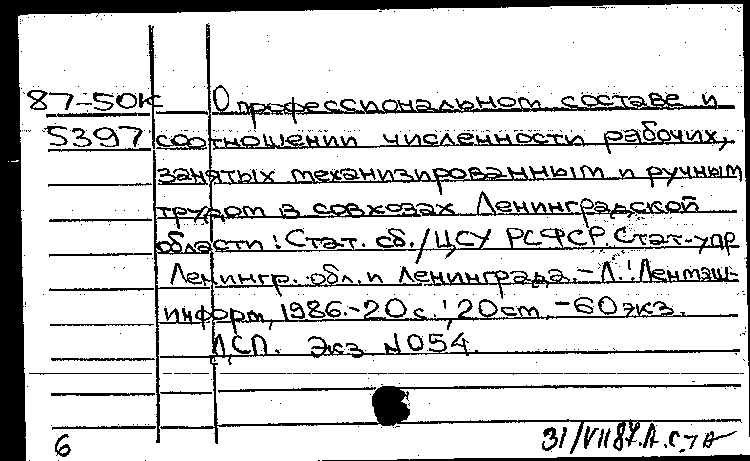 87-50к О профессиональном составе и
5397 соотношении численности рабочих,
занятых механизированным и ручным
трудом в совхозах Ленинградской
области: Стат. сб./ЦСУ РСФСР. Стат. упр
Ленингр. обл. и Ленинграда.-Л.:
информ, 1986.-20 с.; 20 см. -60 экз.
ДСП. Экз №054.
6 31/VII 87.